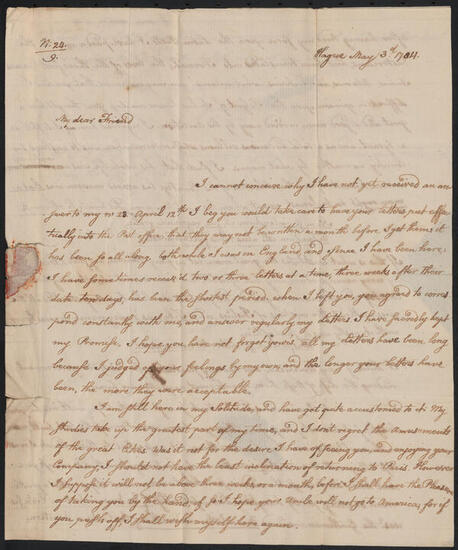 N: 24.
9.
Hague May 3d. 1784.
My dear Friend
I cannot conceive why I have not yet received an an
swer to my n: 23. April 12th I beg you would take care to have your letters, put effec
tually into the Post office that they may not be written a month before I get them it
has been so all along, both while I was in England, and since I have been here,
I have sometimes receiv'd two or three letters at a time, three weeks after their
date ten days, has been the shortest period. when I left you, you agreed to corres
pond constantly with me, and answer regularly my Letters I have faithfully kept
my Promise. I hope you have not forgot yours. all my letters have been long
because I judged of your feelings by my own, and the longer your letters have
been, the more they were acceptable.
I am still here in my Solitude, and have got quite accustomed to it. My
Studies take up the greatest part of my time, and I don't regret the Amusements
of the great Cities. Was it not for the desire I have of seeing you, and enjoying your
Company, I should not have the least inclination of returning to Paris. However
I suppose it will not be above three weeks, or a month, before I shall have the Pleasure
of taking you by the hand, if so I hope your Uncle will not go to America, for if
you push off, I shall wish myself here again.